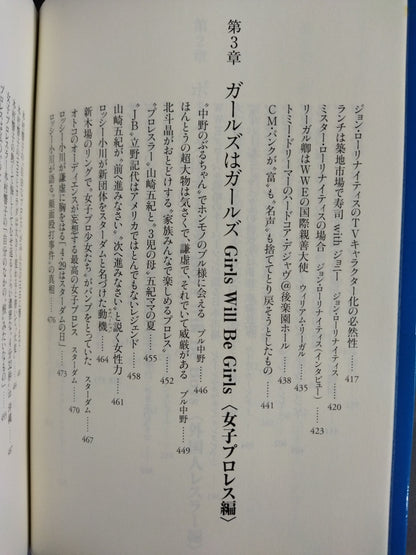 ジョン・ローリナイティスのTVキャラクター化の必然性……417
ランチは築地市場で寿司 with ジョニー　ジョン・ローリナイティス……420
ミスター・ローリナイティスの場合　ジョン・ローリナイティス(インタビュー)……423
リーガル卿はWWEの国際親善大使　ウィリアム・リーガル……435
トミー・ドリーマーのハードコア・デジャヴ@後楽園ホール……438
CM・パンクが“富”も“名声”も捨ててとり戻そうとしたもの……441
第3章　ガールズはガールズ Girls Will Be Girls〈女子プロレス編〉
“中野のぶるちゃん”でホンモノのブル様に会える　ブル中野……446
ほんとうの超大物は気さくで、謙虚で、それでいて威厳がある　ブル中野……449
北斗晶がおとどけする“家族みんなで楽しめるプロレス”……452
“プロレスラー”山崎五紀と“3児の母”五紀ママの夏……455
“JB”立野記代はアメリカではとんでもないレジェンド……458
山崎五紀が“前へ進みなさい”“次へ進みなさい”と説く女性力……461
ロッシー小川が新団体をスターダムと名づけた動機……464
新木場のリングで“女子プロ少女たち”がバンプをとっていた　スターダム……467
オトコのオーディエンスが妄想する最高の女子プロレス　スターダム……470
ロッシー小川が謙虚に胸をはる「4・29はスターダムの日」……473
ロッシー小川が語る「顔面殴打事件」の真相……476